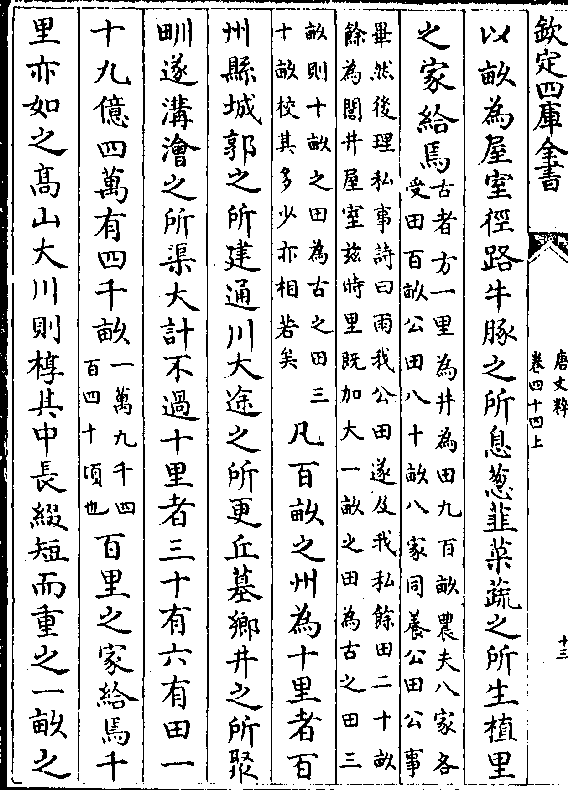 欽定四庫全書
唐文粹
卷四十四上
十三
以畝為屋室徑路牛豚之所息葱韭菜蔬之所生植里
之家給焉
古者方一里為井為田九百畝農夫八家各
受田百畝公田八十畝八家同養公田公事
畢然後理私事詩曰雨我公田遂及我私餘田二十畝
餘為閭井屋室兹時里既加大一畝之田為古之田三
畝則十畝之田為古之田三
十畝校其多少亦相若矣
凡百畝之州為十里者百
州縣城郭之所建通川大途之所更丘墓鄉井之所聚
甽遂溝澮之所渠大計不過十里者三十有六有田一
十九億四萬有四千畝
一萬九千四
百四十頃也
百里之家給焉千
里亦如之髙山大川則椁其中長綴短而重之一畝之